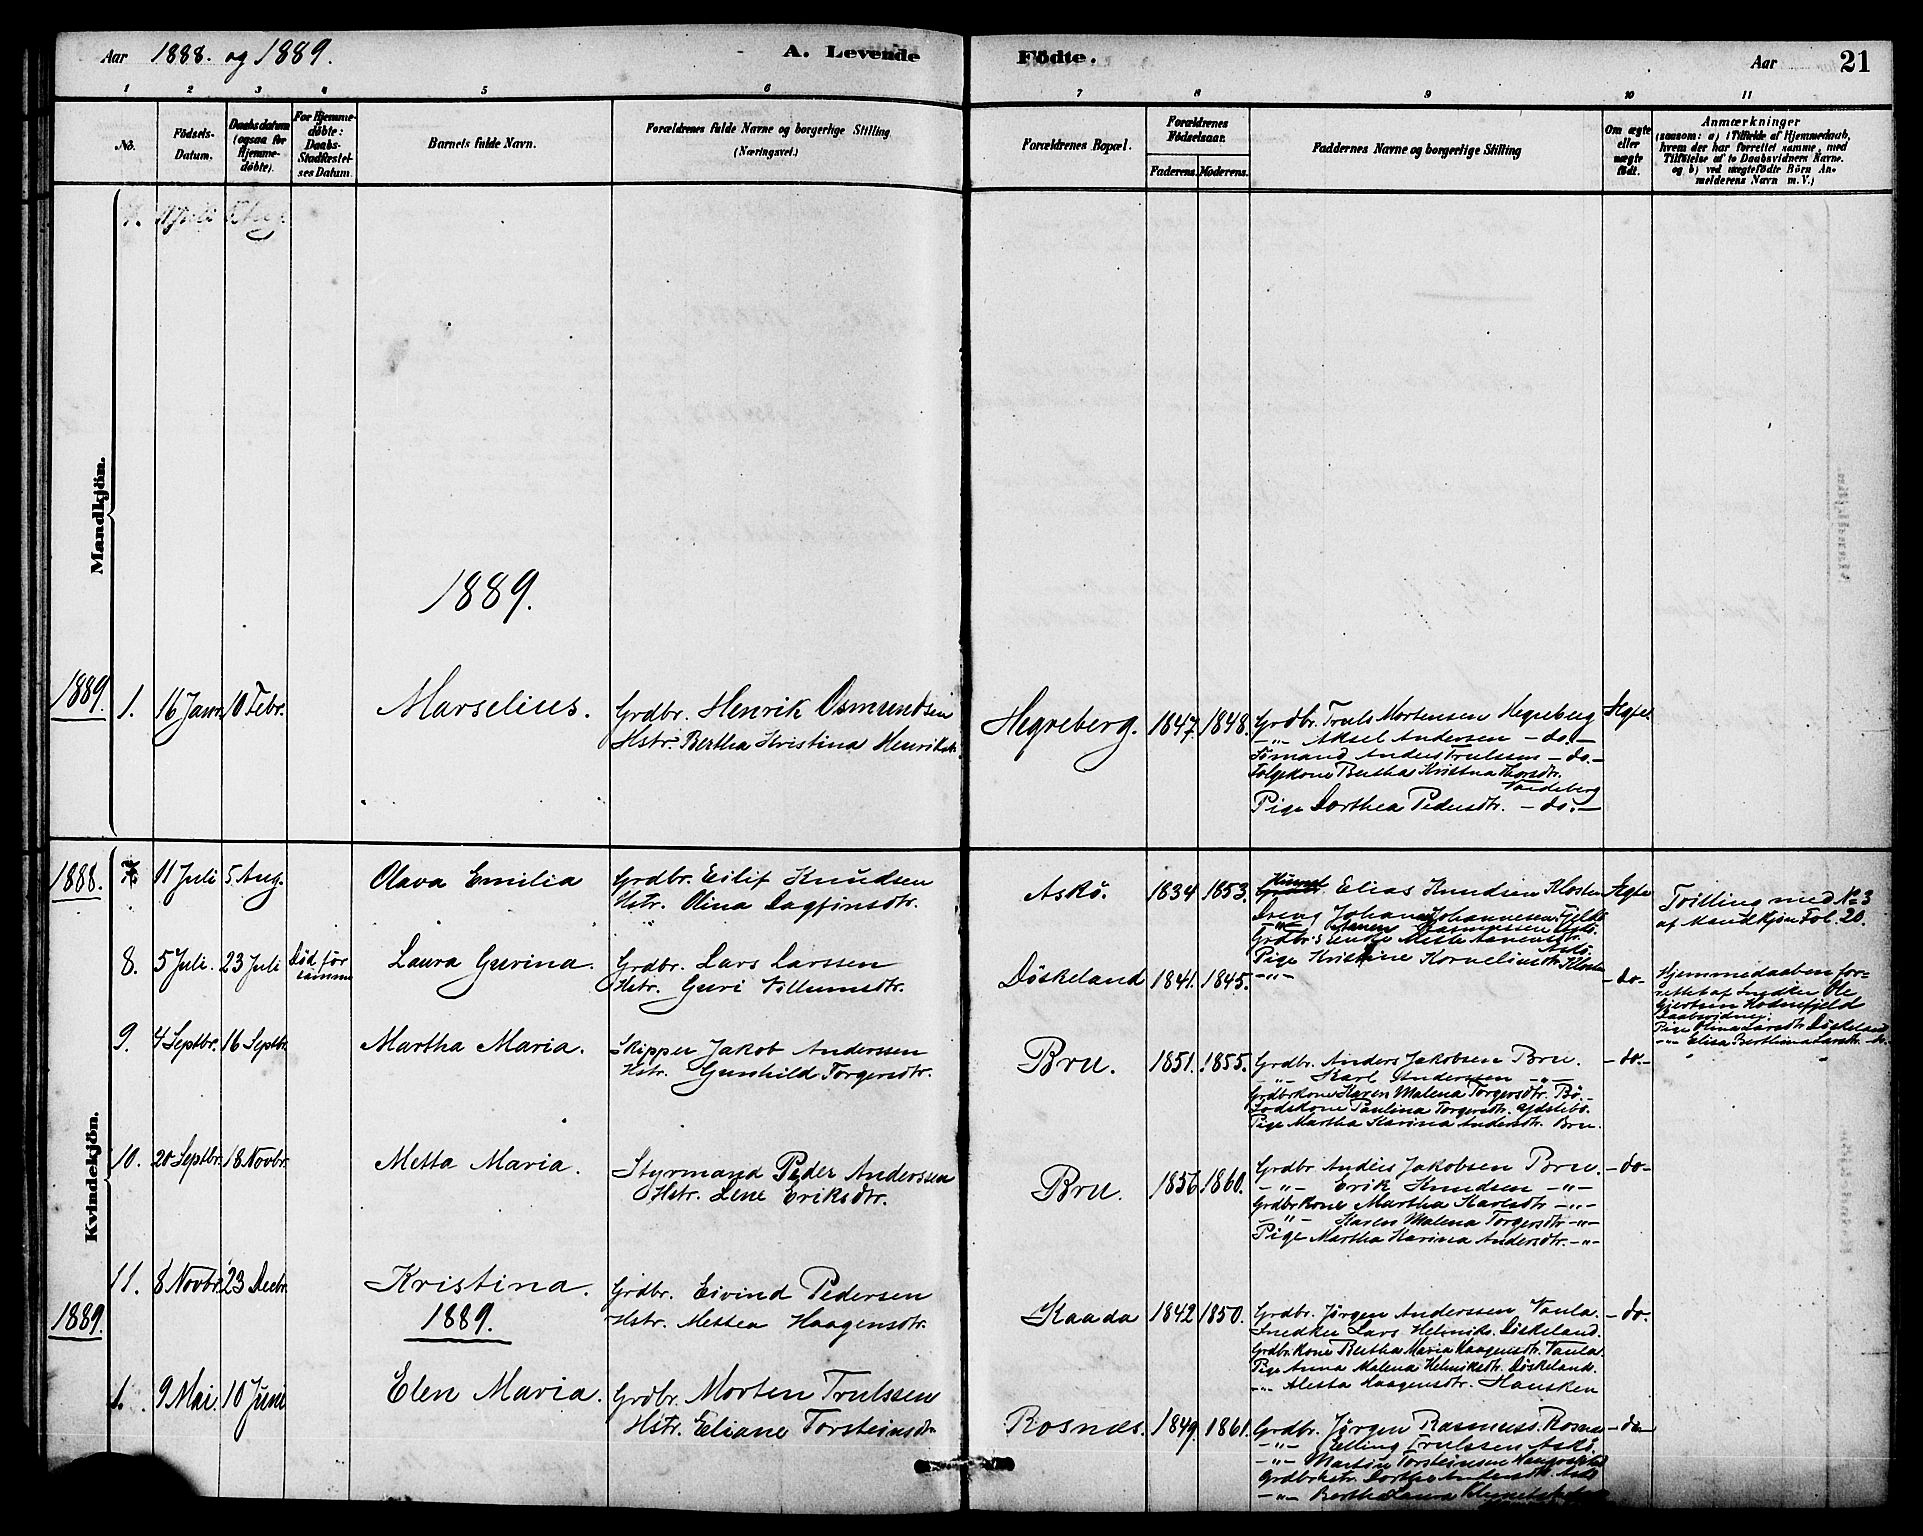 Aar 1888. og 1889. A. Levende Födte. Aar 21
1 2 3 4 5 6 7 8 9 10 11
No. Födsels-Datum. Daabsdatum (ogsaa for Hjemme-døbte). For Hjemme-døbte: Daabs-Stadfæstel-ses Datum. Barnets fulde Navn. Forældrenes fulde Navne og borgerlige Stilling (Næringsvei.) Forældrenes Bopæl. Forældrenes Födselsaar. Faderens. Moderens. Faddernes Navne og borgerlige Stilling Om ægte eller uægte födt. Anmærkninger
(saasom: a) i Tilfælde af Hjemmedaab,
hvem der har forrettet samme, med
Tilföielse af to Daabsvidners Navne.
og b) ved uægtefödte Börn An-
melderens Navn m.V.)
Mandkjön.
1889.
1889. 1. 16 Janr. 10 Febr. Marselius. Grdbr. Henrik Osmundsen
Hstr. Bertha Kristina Henriksdtr.
Hegreberg. 1847. 1848. Grdbr. Truls Mortensen Hegreberg Ægte.
-"- Aksel Andersen - do. -
Sömand Anders Trulssen - do. -
Folgekone Bertha Kristina Thorsdtr.
Vandeberg
Pige Dorthea Pedersdtr. - do. -
Kvindekjön.
1888. 7. 11 Juli 5 Aug. Olava Emilia Grdbr. Eilif Knudsen
Hstr. Olina Dagfinsdtr.
Askö. 1834 1853. Elias Knudsen Kloster Ægte
Dreng Johan Johannesen Fjeldö
Rasmussen Askö.
Grdbr.s Enke Mette
Askö
Pige Kristine Korneliusdtr. Kloster
Tvilling med No 3
af Mandkjøn Fol. 20.
8. 5 Juli. 23 Juli Död för samme Laura Gurina. Grdbr. Lars Larssen
Hstr. Guri Villumsdtr.
Döskeland 1841. 1845. -"- - do -
Hjemmedaaben for-
rettet af Snedker Ole
Gjertsen Hodnefjeld
Daabsvidner:
Pige Olina Larsdtr. Döskeland
-"- Elisa Berthina Larsdtr. do.
9. 4 Septbr. 16 Septbr. Martha Maria. Skipper Jakob Anderssen
Hstr. Gunhild Torgersdtr.
Bru. 1851. 1855. Grdbr. Anders Jakobsen Bru. - do. -
-"- Karl Anderssen -"-
Grdbrkone Karen Malena Torgersdtr. Bö.
Lodskone Paulina Torgersdtr.
Pige Martha Karina Andersdtr. Bru.
10. 20 Septbr. 18 Novbr. Metta Maria. Styrmand Peder Anderssen
Hstr. Lene Eriksdtr.
Bru. 1856 1860. Grdbr. Anders Jakobsen Bru. - do -
-"- Erik Knudsen -"-
Grdbrkone Martha Karlsdtr -"-
-"- Karen Malena Torgersdtr -"-
Pige Martha Karina Andersdtr. -"-
11. 8 Novbr. 23 Decbr. Kristina. Grdbr. Eivind Pedersen
Hstr. Mettea Haagensdtr.
Kaada 1842 1850. Grdbr. Jørgen Anderssen Vaula. - do.
Snedker Lars Helmiks. Döskeland.
Grdbr.kone Bertha Maria Haagensdtr. Vaula.
Pige Anna Malena Helmiksdtr. Döskeland.
-"- Alesta Haagensdtr. Hausken
1889. 1889.
1. 9 Mai. 10 Juni Elen Maria. Grdbr. Morten Trulssen
Hstr. Eliane Torsteinsdtr
Rosnæs. 1849. 1861. Grdbr. Jørgen Rasmuss. Rosnæs - do -
-"- Elling Trulssen Askö.
-"- Martin Torsteinsen
Grdbrkstr. Dorthe Andersdtr. Askö
-"- Bertha Laura